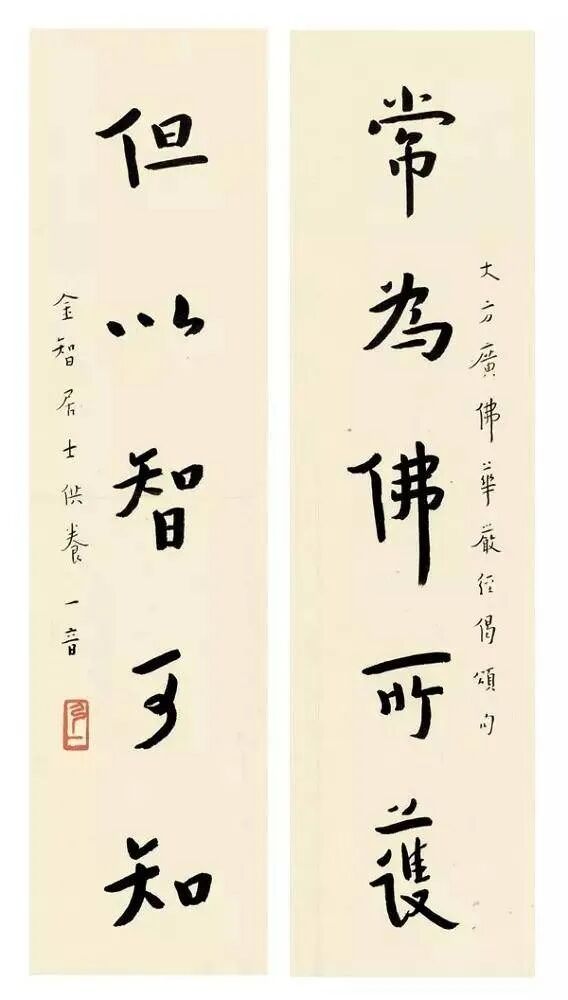 大方廣佛華嚴經偈頌句
常為佛所護
但以智可知
金智居士供養 一音